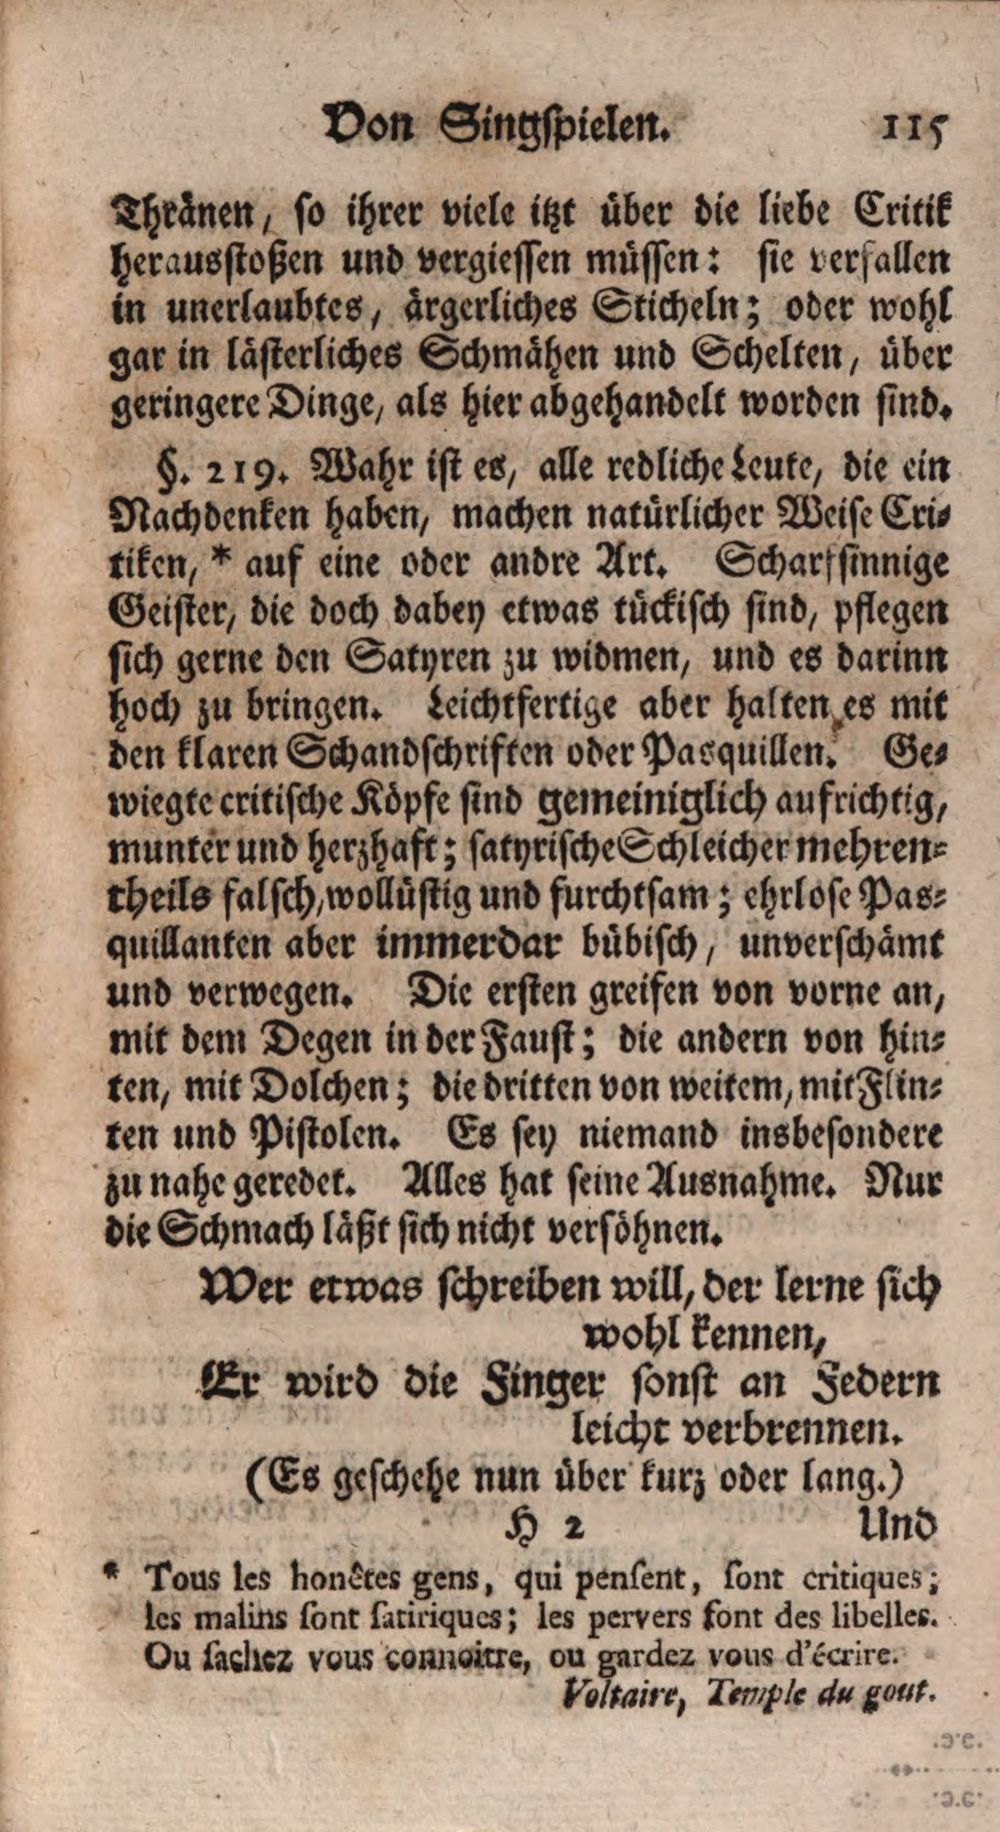 Von Singspielen. 115
Thränen, so ihrer viele itzt über die liebe Critik
herausstoßen und vergiessen müssen: sie verfallen
in unerlaubtes, ärgerliches Sticheln; oder wohl
gar in lästerliches Schmähen und Schelten, über
geringere Dinge, als hier abgehandelt worden sind.
§. 219. Wahr ist es, alle redliche Leute, die ein
Nachdenken haben, machen natürlicher Weise Cri-
tiken, * auf eine oder andre Art. Scharfsinnige
Geister, die doch dabey etwas tückisch sind, pflegen
sich gerne den Satyren zu widmen, und es darinn
hoch zu bringen. Leichtfertige aber halten es mit
den klaren Schandschriften oder Pasquillen. Ge-
wiegte critische Köpfe sind gemeiniglich aufrichtig,
munter und herzhaft; satyrische Schleicher mehren-
theils falsch, wollüstig und furchtsam; ehrlose Pas-
quillanten aber immerdar bübisch, unverschämt
und verwegen. Die ersten greifen von vorne an,
mit dem Degen in der Faust; die andern von hin-
ten, mit Dolchen; die dritten von weitem, mit Flin-
ten und Pistolen. Es sey niemand insbesondere
zu nahe geredet. Alles hat seine Ausnahme. Nur
die Schmach läßt sich nicht versöhnen.
Wer etwas schreiben will, der lerne sich
wohl kennen,
Er wird die Finger sonst an Federn
leicht verbrennen.
(Es geschehe nun über kurz oder lang.)
H 2 Und
* Tous les honêtes gens, qui pensent, sont critiques;
les malins sont satiriques; les pervers font des libelles.
Ou sachez vous connoitre, ou gardez vous d'écrire.
Voltaire, Temple du gout.